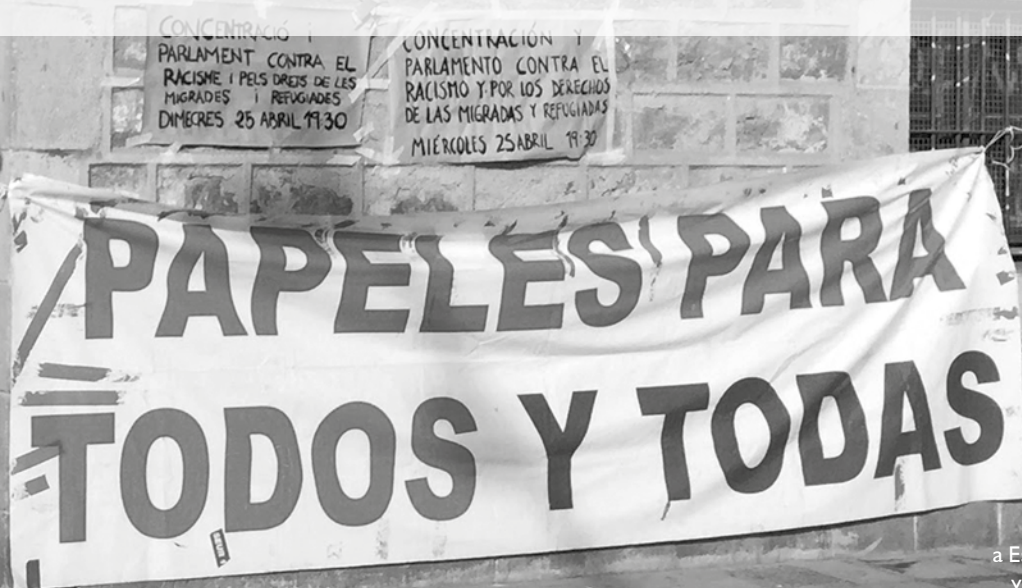 CONCENTRACIÓ i
PARLAMENT CONTRA EL
RACISME i PELS DRETS DE LES
MIGRADES i REFUGIADES
DIMECRES 25 ABRIL 19:30
CONCENTRACIÓN Y
PARLAMENTO CONTRA EL
RACISMO Y POR LOS DERECHOS
DE LAS MIGRADAS Y REFUGIADAS
MIÉRCOLES 25 ABRIL 19:30
PAPELES PARA
TODOS Y TODAS
a E